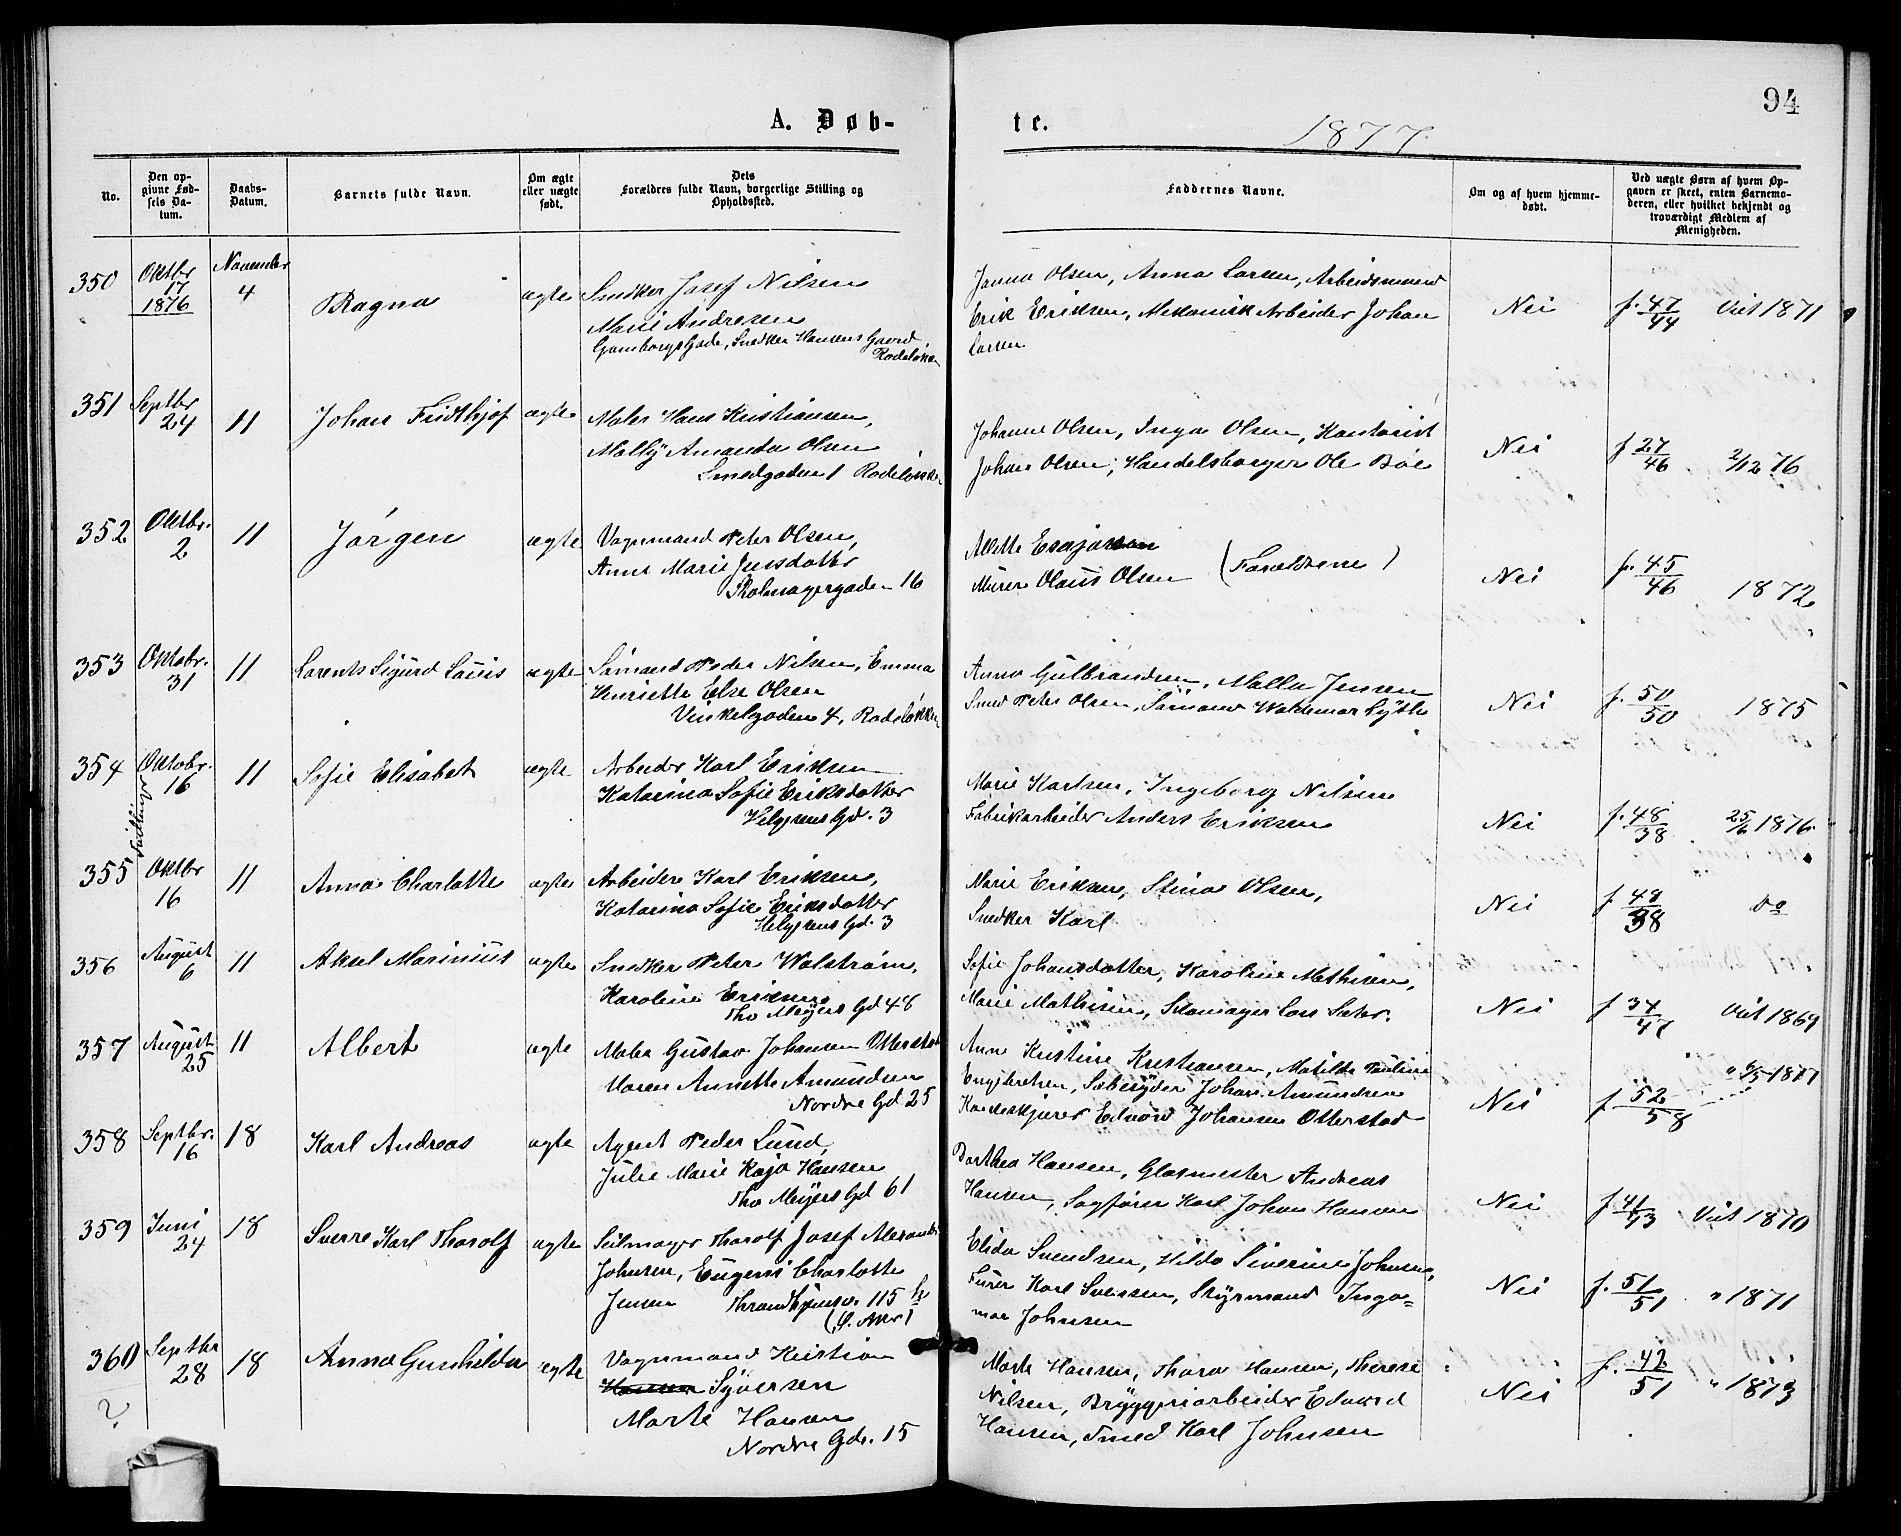 94
A. Døb-
te.
1877.
No.
Den op-
givne Fød-
sels Da-
tum.
Daabs-
Datum.
Barnets fulde Navn.
Om ægte
eller uægte
født.
Dets
Forældres fulde Navn, borgerlige Stilling og
Opholdssted.
Faddernes Navne.
Om og af hvem hjemme-
døbt.
Ved uægte Børn af hvem Op-
gaven er skeet, enten Barnemo-
deren, eller hvilket bekjendt og
troværdigt Medlem af
Menigheden.
350
Oktbr
17
1876
November
4
Ragna
ægte
Snedker Josef Nilsen
Marie Andresen
Gamborgs Gade, Snedker Hansens Gaard,
Rodeløkken
Olsen, Anna Larsen, Arbeidsmand
Erik Eriksen, Mekanisk Arbeider Johan
Larsen
Nei
f. 47/44 Viet 1871
351
Septbr
24
11
Johan Fridthjof
ægte
Maler Hans Kristiansen,
Mally Amanda Olsen
Smedgaden 1 Rodeløkken
Johanne Olsen, Inga Olsen, Kontorist
Johan Olsen, Handelsborger Ole Bøe
Nei
f 27/46 2/12 76
352
Oktbr.
2
11
Jørgen
ægte
Vognmand Peter Olsen,
Anne Marie Jensdatter
16
Alette
Murer Olaus Olsen (Forældrene)
Nei
f. 45/46 1872
353
Oktobr.
31
11
Lorents Sigurd Louis
ægte
Sømand Peder Nilsen, Emma
Henriette Else Olsen
Vinkelgaden 4, Rodeløkken
Anna Gulbrandsen, Malla Jensen
Smed Peter Olsen, Sømand Waldemar
Nei
f. 50/50 1875
354
Oktobr.
16
Tvillinger
11
Sofie Elisabet
ægte
Arbeider Karl Eriksen
Katarina Sofie Eriksdatter
Helgesens Gd. 3
Marie Karlsen, Ingeborg Nilsen
Fabrikarbeider Anders Eriksen
Nei
f. 48/38 25/6 1876
355
Oktbr
16
11
Anna Charlotte
ægte
Arbeider Karl Eriksen,
Katarina Sofie Eriksdatter
Helgesens Gd. 3
Marie Eriksen, Stina Olsen,
Snedker Karl
Nei
f 48/38 do
356
August
6
11
Aksel Marinius
ægte
Snedker Peter Walstrøm,
Karoline Eriksen
Tho Meyers Gd 48
Sofie Johansdatter, Karoline Mathisen,
Marie Mathisen, Skomager Lars
Nei
f 34/47 Viet 1869
357
August
25
11
Albert
ægte
Maler Gustav Johansen Otterstad
Maren Annette Amundsen
Nordre Gd 25
Anne Kristine Kristiansen, Matilde Pauline
Engebretsen, Johan Amundsen
Edvard Johansen Otterstad
Nei
f 52/58
358
Septbr.
16
18
Karl Andreas
ægte
Agent Peder Lund,
Julie Marie Kaja Hansen
Tho Meyers Gd 61
Dorthea Hansen, Glasmester Andreas
Hansen, Sagfører Karl Johan Hansen
Nei
f 41/43 Viet 1870
359
Juni
24
18
Sverre Karl Tharolf
ægte
Seilmager Tharolf Josef
Johnsen, Eugenie Charlotte
Jensen 115 b
Elida Svendsen, Hilda Siverine Johnsen,
Karl Svensen, Styrmand Inga=
mar Johnsen
Nei
f. 51/51 " 1871
360
Septbr
28
18
Anna Gunhilda
ægte
Vognmand Kristian
Hansen Syversen
Marte Hansen
Nordre Gde. 15
Marte Hansen, Thora Hansen, Therese
Nilsen, Bryggeriarbeider Edvard
Hansen, Smed Karl Johnsen
Nei
f. 42/51 " 1873
?